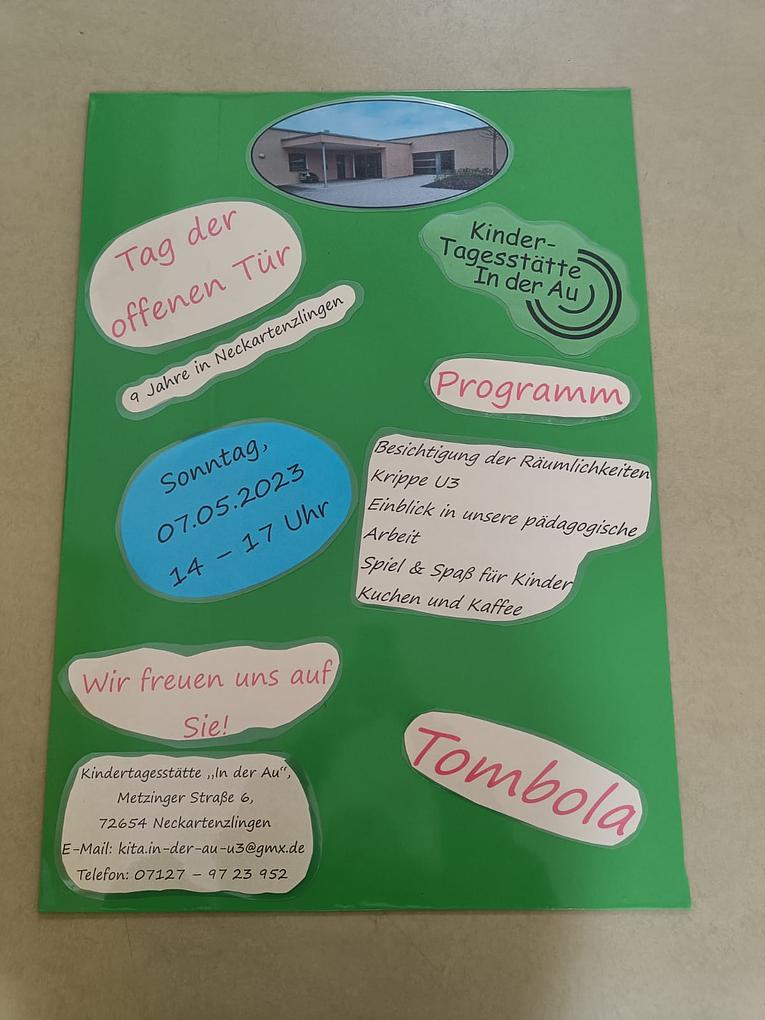 Tag der
offenen Tür
9 Jahre in Neckartenzlingen
Kinder-
Tagesstätte
In der Au
Programm
Sonntag,
07.05.2023
14 – 17 Uhr
Besichtigung der Räumlichkeiten
Krippe U3
Einblick in unsere pädagogische
Arbeit
Spiel & Spaß für Kinder
Kuchen und Kaffee
Wir freuen uns auf
Sie!
Tombola
Kindertagesstätte „In der Au“,
Metzinger Straße 6,
72654 Neckartenzlingen
E-Mail: kita.in-der-au-u3@gmx.de
Telefon: 07127 – 97 23 952